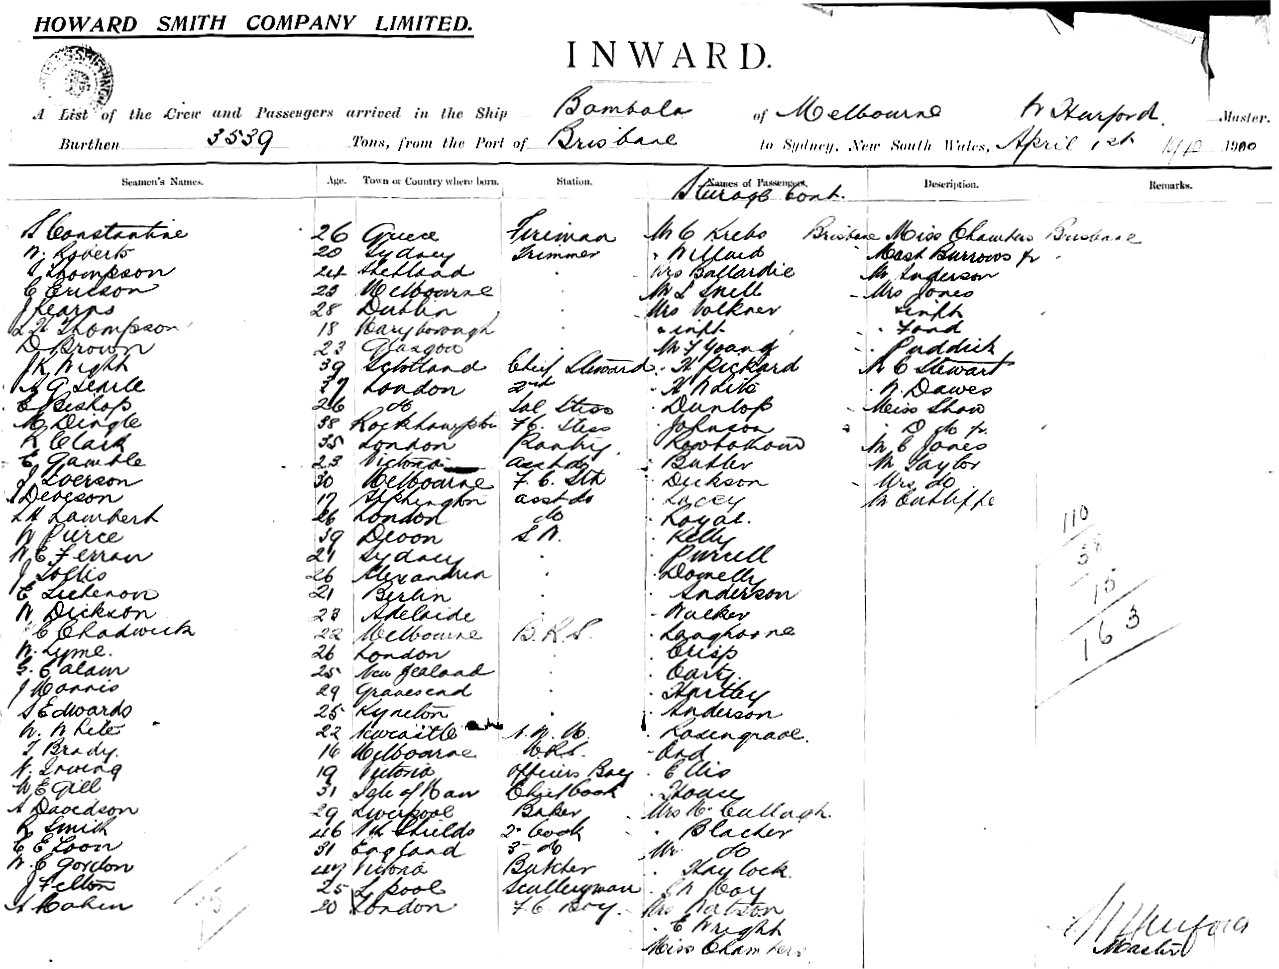 HOWARD SMITH COMPANY LIMITED.
INWARD.
A List of the Crew and Passengers arrived in the Ship Bombala of Melbourne W Hurford. Master.
Burthen 3539 Tons, from the Port of Brisbane to Sydney, New South Wales, April 1st 1910
Seamen's Names. Age. Town or Country where born. Station. Names of Passengers. Description. Remarks.
Steerage Cont.
S Constantine 26 Greece Fireman Mr C Krebs Brisbane Miss Chambers Brisbane
W. Roberts 20 Sydney Trimmer " Willard Mast Burrows jr
J Thompson 24 Shetland Mrs Ballardie Mr Anderson
C Ericson 23 Melbourne Mr S Snell Mrs Jones
J Kearns 28 Dublin Mrs Volkner " inft
Thompson 18 Maryborough " inft " Ford
D Brown 23 Glasgow Mr F Young Puddick
Wight 39 Scotland Chief Steward " H Rickard Mr C Stewart
A G Searle 37 London 2nd " H White " W Dawes
E Bishop 26 do Sal Stess " Dunlop Miss Shaw
M Dingle 38 Rockhampton F.C. Stess " Johnson " Do jr.
R Clark 35 London Pantry " Rowbotham Mr C Jones
E Gamble 23 Victoria asst do " Butler Mr Taylor
J Iverson 30 Melbourne F.C. Sth " Dickson Mrs do
Deveson 17 asst do " Lacey Mr Cutliffe
Lambert 26 London do " Loyal.
W Pierce 39 Devon S.W. " Kelly
W E Ferran 21 Sydney " Purcell
J Loftis 26 Alexandria " Donnelly
E 21 Berlin " Anderson
W Dickson 23 Adelaide " Walker
C Chadwick 22 Melbourne B.R.S. " Langhorne
W. Lyme. 26 London " Crisp
25 New Zealand " Carty.
J Mannis 29 Gravesend " Hartley
S Edwards 25 Kyneton " Anderson
W. White 22 Newcastle " Rosengrave.
T Brady. 16 Melbourne " Ord
W. Irving 19 Victoria Officers Boy " Ellis
W E Gill 31 Isle of Man Chief Cook " House
A Davidson 29 Liverpool Baker Mrs McCullagh.
R Smith 46 Nth Shields 2nd Cook " Blacker
C E Loon 31 England 3rd do Mr do
W. E Gordon 47 Victoria Butcher " Haylock.
J Felton 25 L'pool Sculleryman " Day
A Cohen 20 London F.C. Boy. Mrs Watson
" E Wright
Miss Chambers.
110
38
15
163
W Hurford
Master